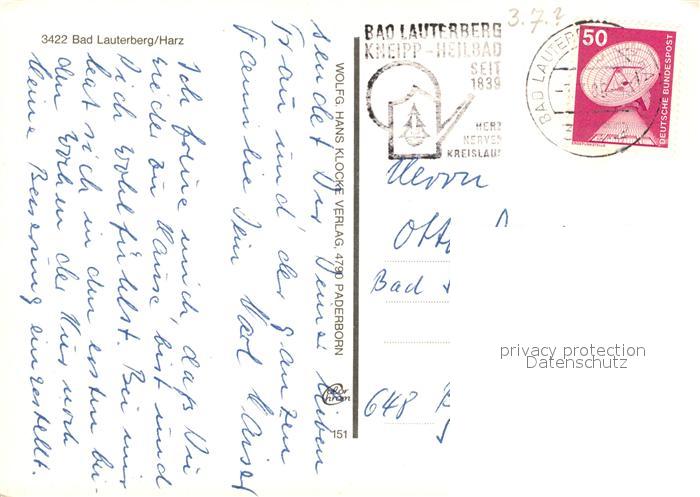 3422 Bad Lauterberg/Harz
Ich freue mich, daß Du
wieder zu Hause bist und
Dich wohl fühlst. Bei mir
hat sich in den ersten bei-
den Wochen der Kur noch
keine Besserung eingestellt.
sendet Dir Deiner lieben
Frau und der ganzen
Familie Dein Karl Kaiser
WOLFG. HANS KLOCKE VERLAG, 4790 PADERBORN
Color
Chrom
151
3.7.?
BAD LAUTERBERG
KNEIPP-HEILBAD
SEIT
1839
HERZ
NERVEN
KREISLAUF
BAD LAUTERB
50
DEUTSCHE BUNDESPOST
Herrn
Otto
Bad
648
privacy protection
Datenschutz